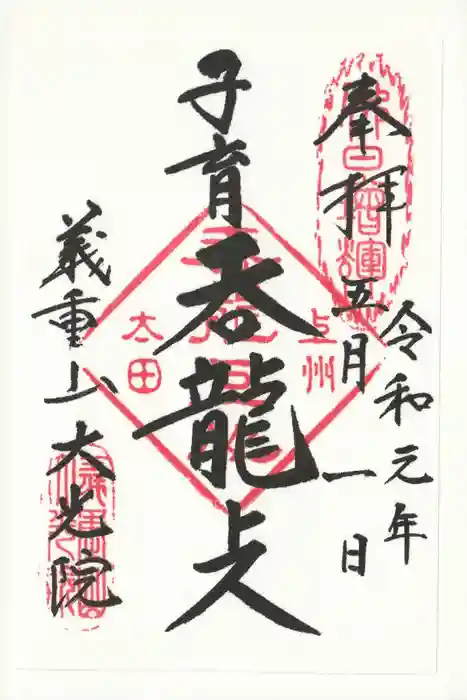 奉拝
令和元年
五月一日
子育呑龍上人
上州
太田
義重山大光院